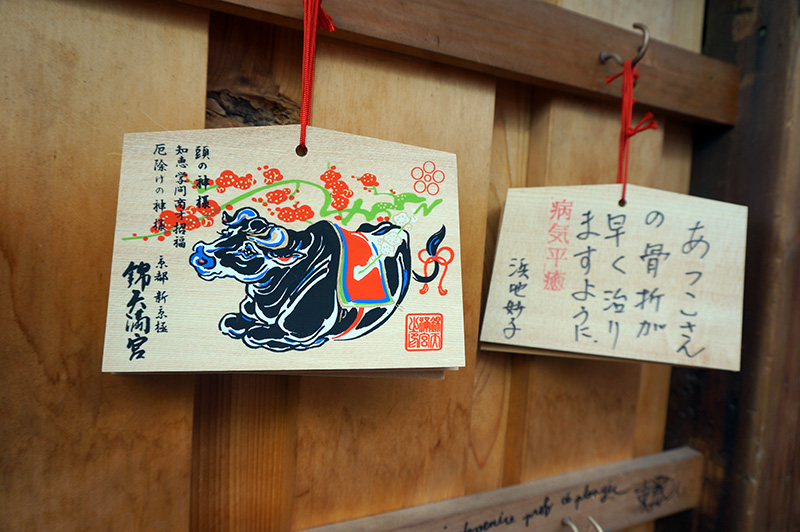 頭の神様
知恵学問商才招福
厄除けの神様
京都 新京極
錦天満宮
あつこさん
の骨折が
早く治り
ますように、
病気平癒
浜地妙子